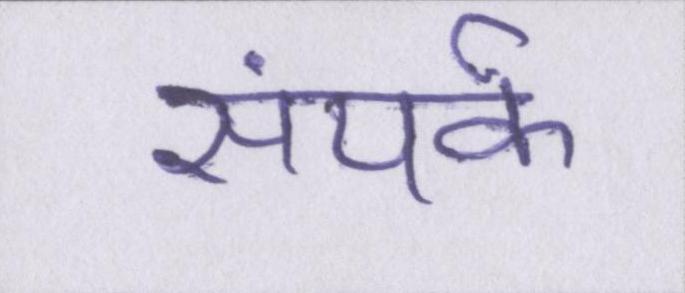 संपर्क